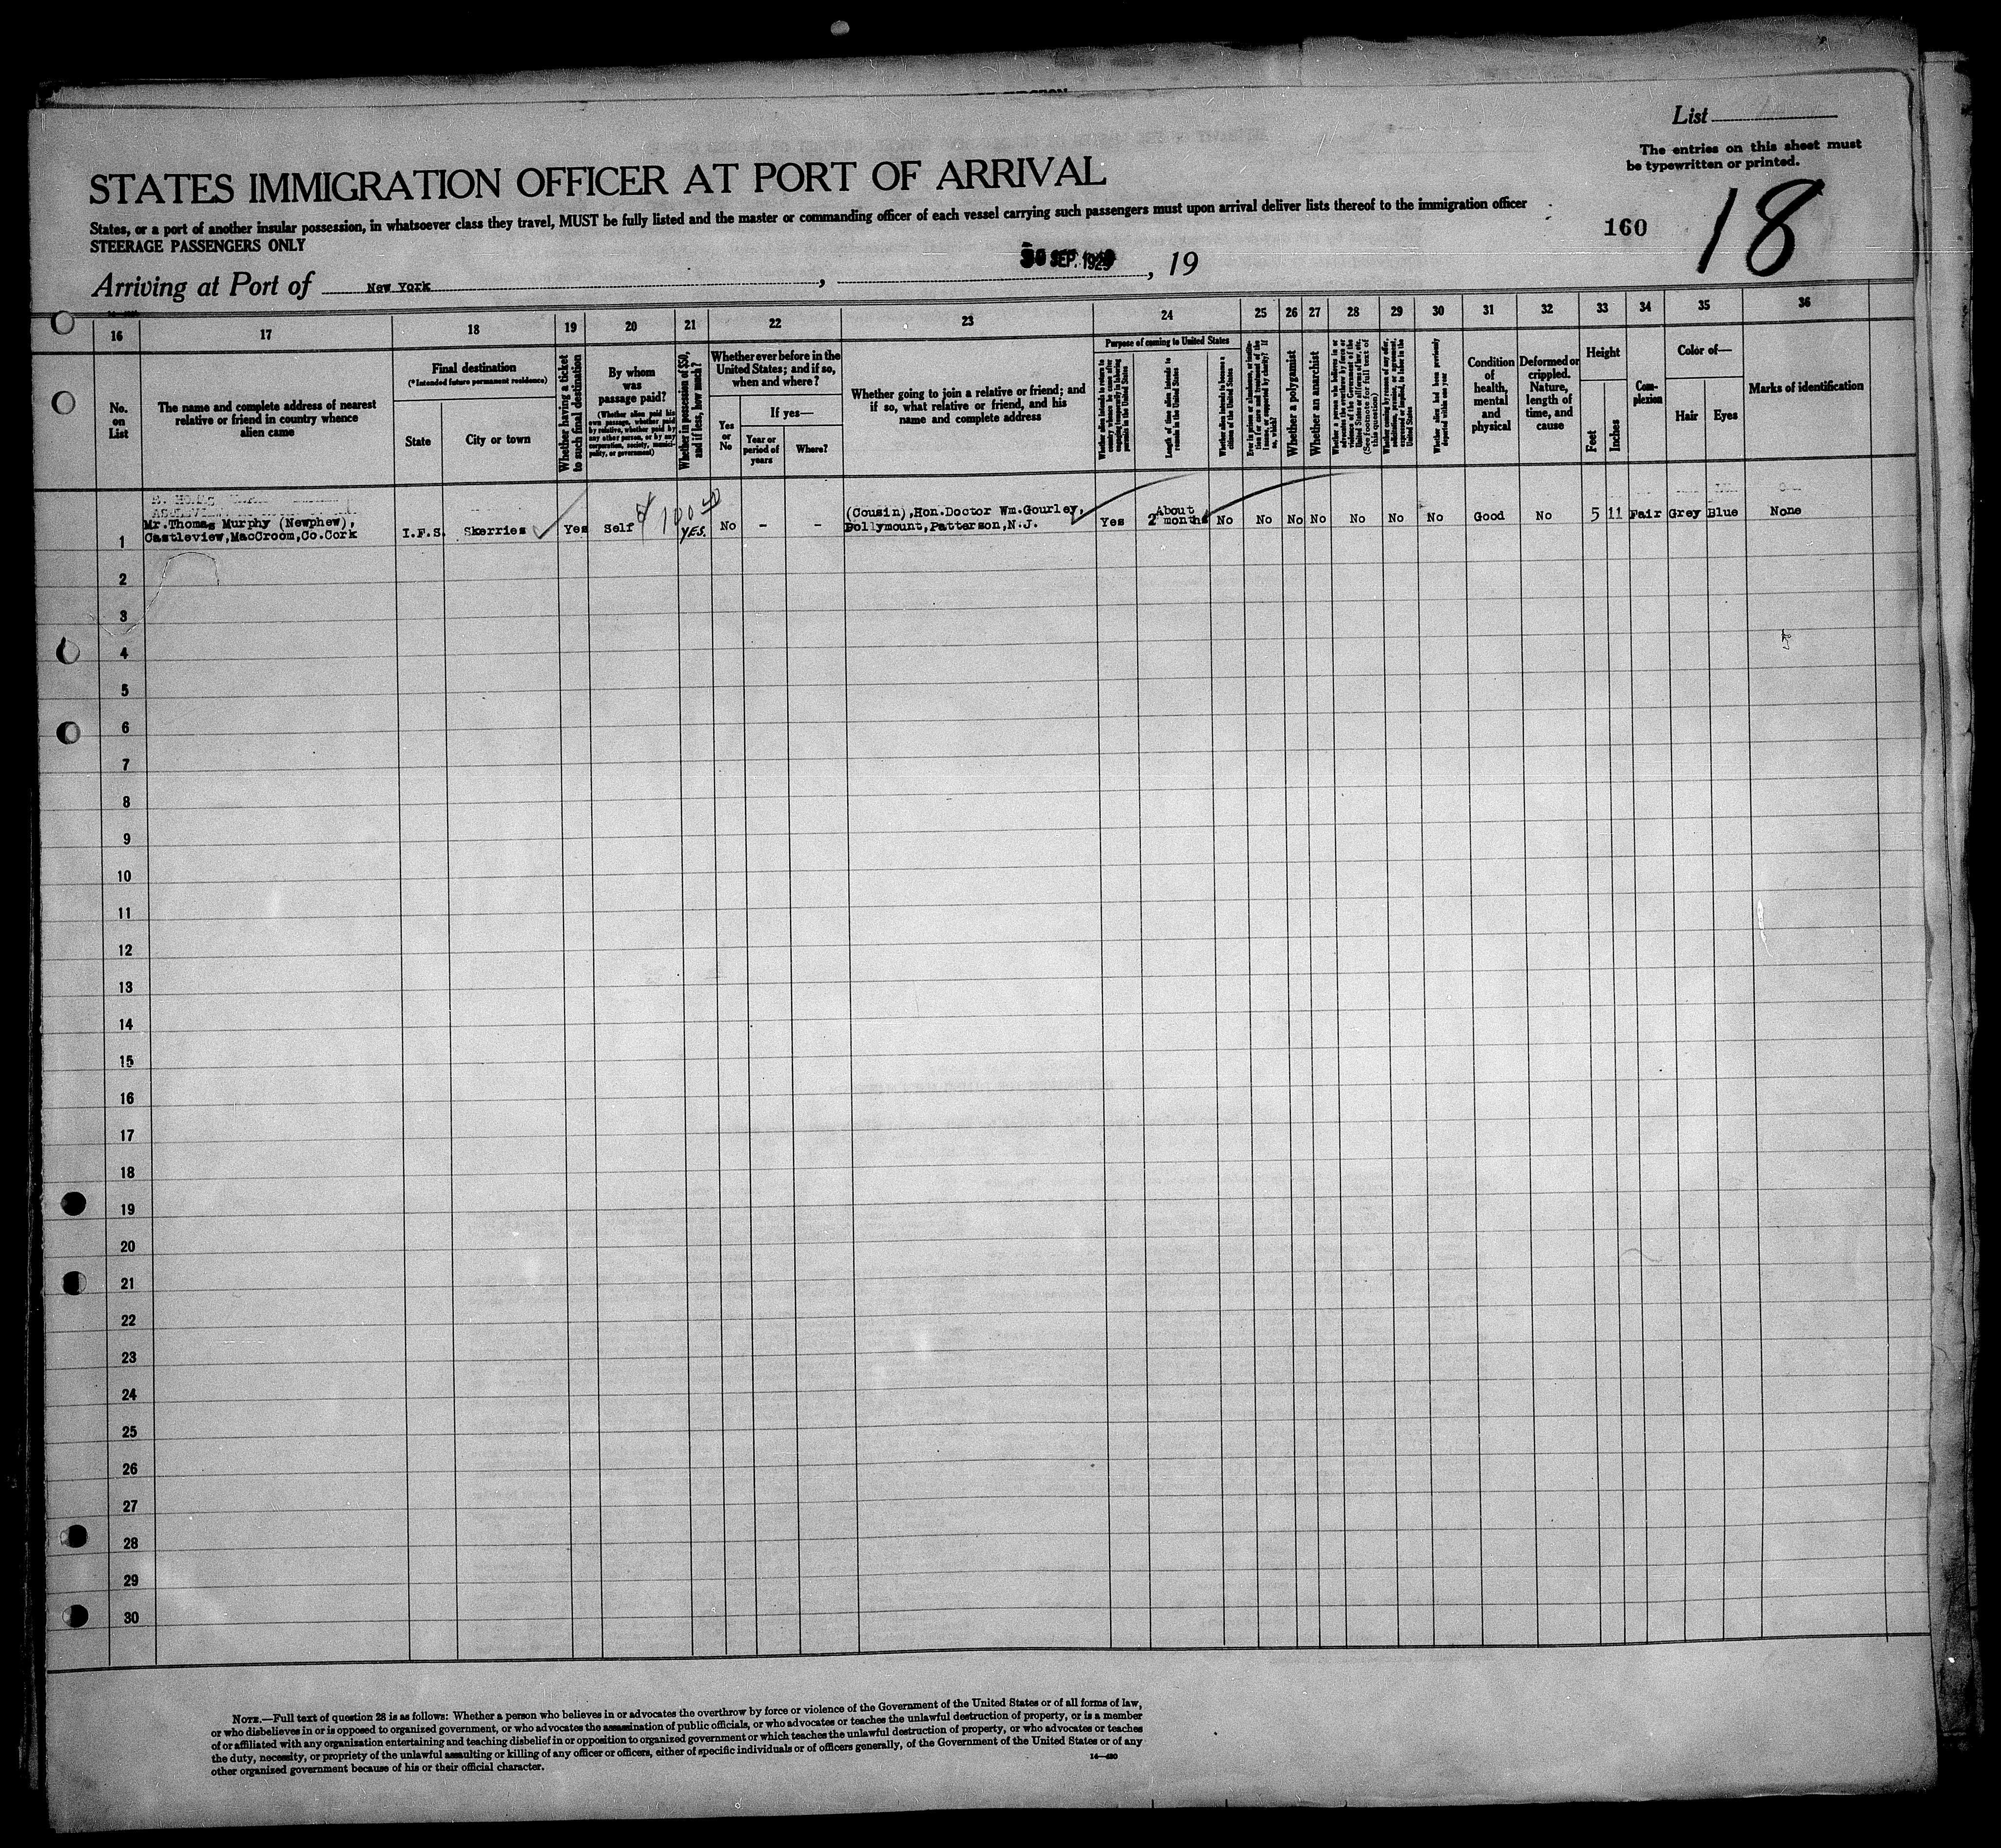 List
The entries on this sheet must
be typewritten or printed.
STATES IMMIGRATION OFFICER AT PORT OF ARRIVAL
States, or a port of another insular possession, in whatsoever class they travel, MUST be fully listed and the master or commanding officer of each vessel carrying such passengers must upon arrival deliver lists thereof to the immigration officer
STEERAGE PASSENGERS ONLY
160
18
Arriving at Port of New York, SEP. 1929, 19
16 17 18 19 20 21 22 23 24 25 26 27 28 29 30 31 32 33 34 35 36
No.
on
List
The name and complete address of nearest
relative or friend in country whence
alien came
Final destination
(*Intended future permanent residence)
State
City or town
Whether having a ticket
to such final destination
By whom
was
passage paid?
(Whether alien paid his
own passage, whether paid
by relative, whether paid by
any other person, or by any
corporation, society, munici-
pality, or government)
Whether in possession of $50,
and if less, how much?
Whether ever before in the
United States; and if so,
when and where?
Yes
or
No
If yes—
Year or
period of
years
Where?
Whether going to join a relative or friend; and
if so, what relative or friend, and his
name and complete address
Purpose of coming to United States
Length of time alien intends to
remain in the United States
Whether alien intends to become a
citizen of the United States
Whether a polygamist
Whether an anarchist
(See footnote for full text of
this question)
Whether alien had been previously
deported within one year
Condition
of
health,
mental
and
physical
Deformed or
crippled.
Nature,
length of
time, and
cause
Height
Feet
Inches
Com-
plexion
Color of—
Hair
Eyes
Marks of identification
Mr.Thomas Murphy (Newphew),
Castleview,MacCroom,Co.Cork
1 I.F.S. Skerries Yes Self 100 YES. No - -
(Cousin),Hon.Doctor Wm.Gourley,
Dollymount,Patterson,N.J.
Yes About
2 months No No No No No No No Good No 5 11 Fair Grey Blue None
2
3
4
5
6
7
8
9
10
11
12
13
14
15
16
17
18
19
20
21
22
23
24
25
26
27
28
29
30
NOTE.—Full text of question 28 is as follows: Whether a person who believes in or advocates the overthrow by force or violence of the Government of the United States or of all forms of law,
or who disbelieves in or is opposed to organized government, or who advocates the assassination of public officials, or who advocates or teaches the unlawful destruction of property, or is a member
of or affiliated with any organization entertaining and teaching disbelief in or opposition to organized government or which teaches the unlawful destruction of property, or who advocates or teaches
the duty, necessity, or propriety of the unlawful assaulting or killing of any officer or officers, either of specific individuals or of officers generally, of the Government of the United States or of any
other organized government because of his or their official character.
14—430